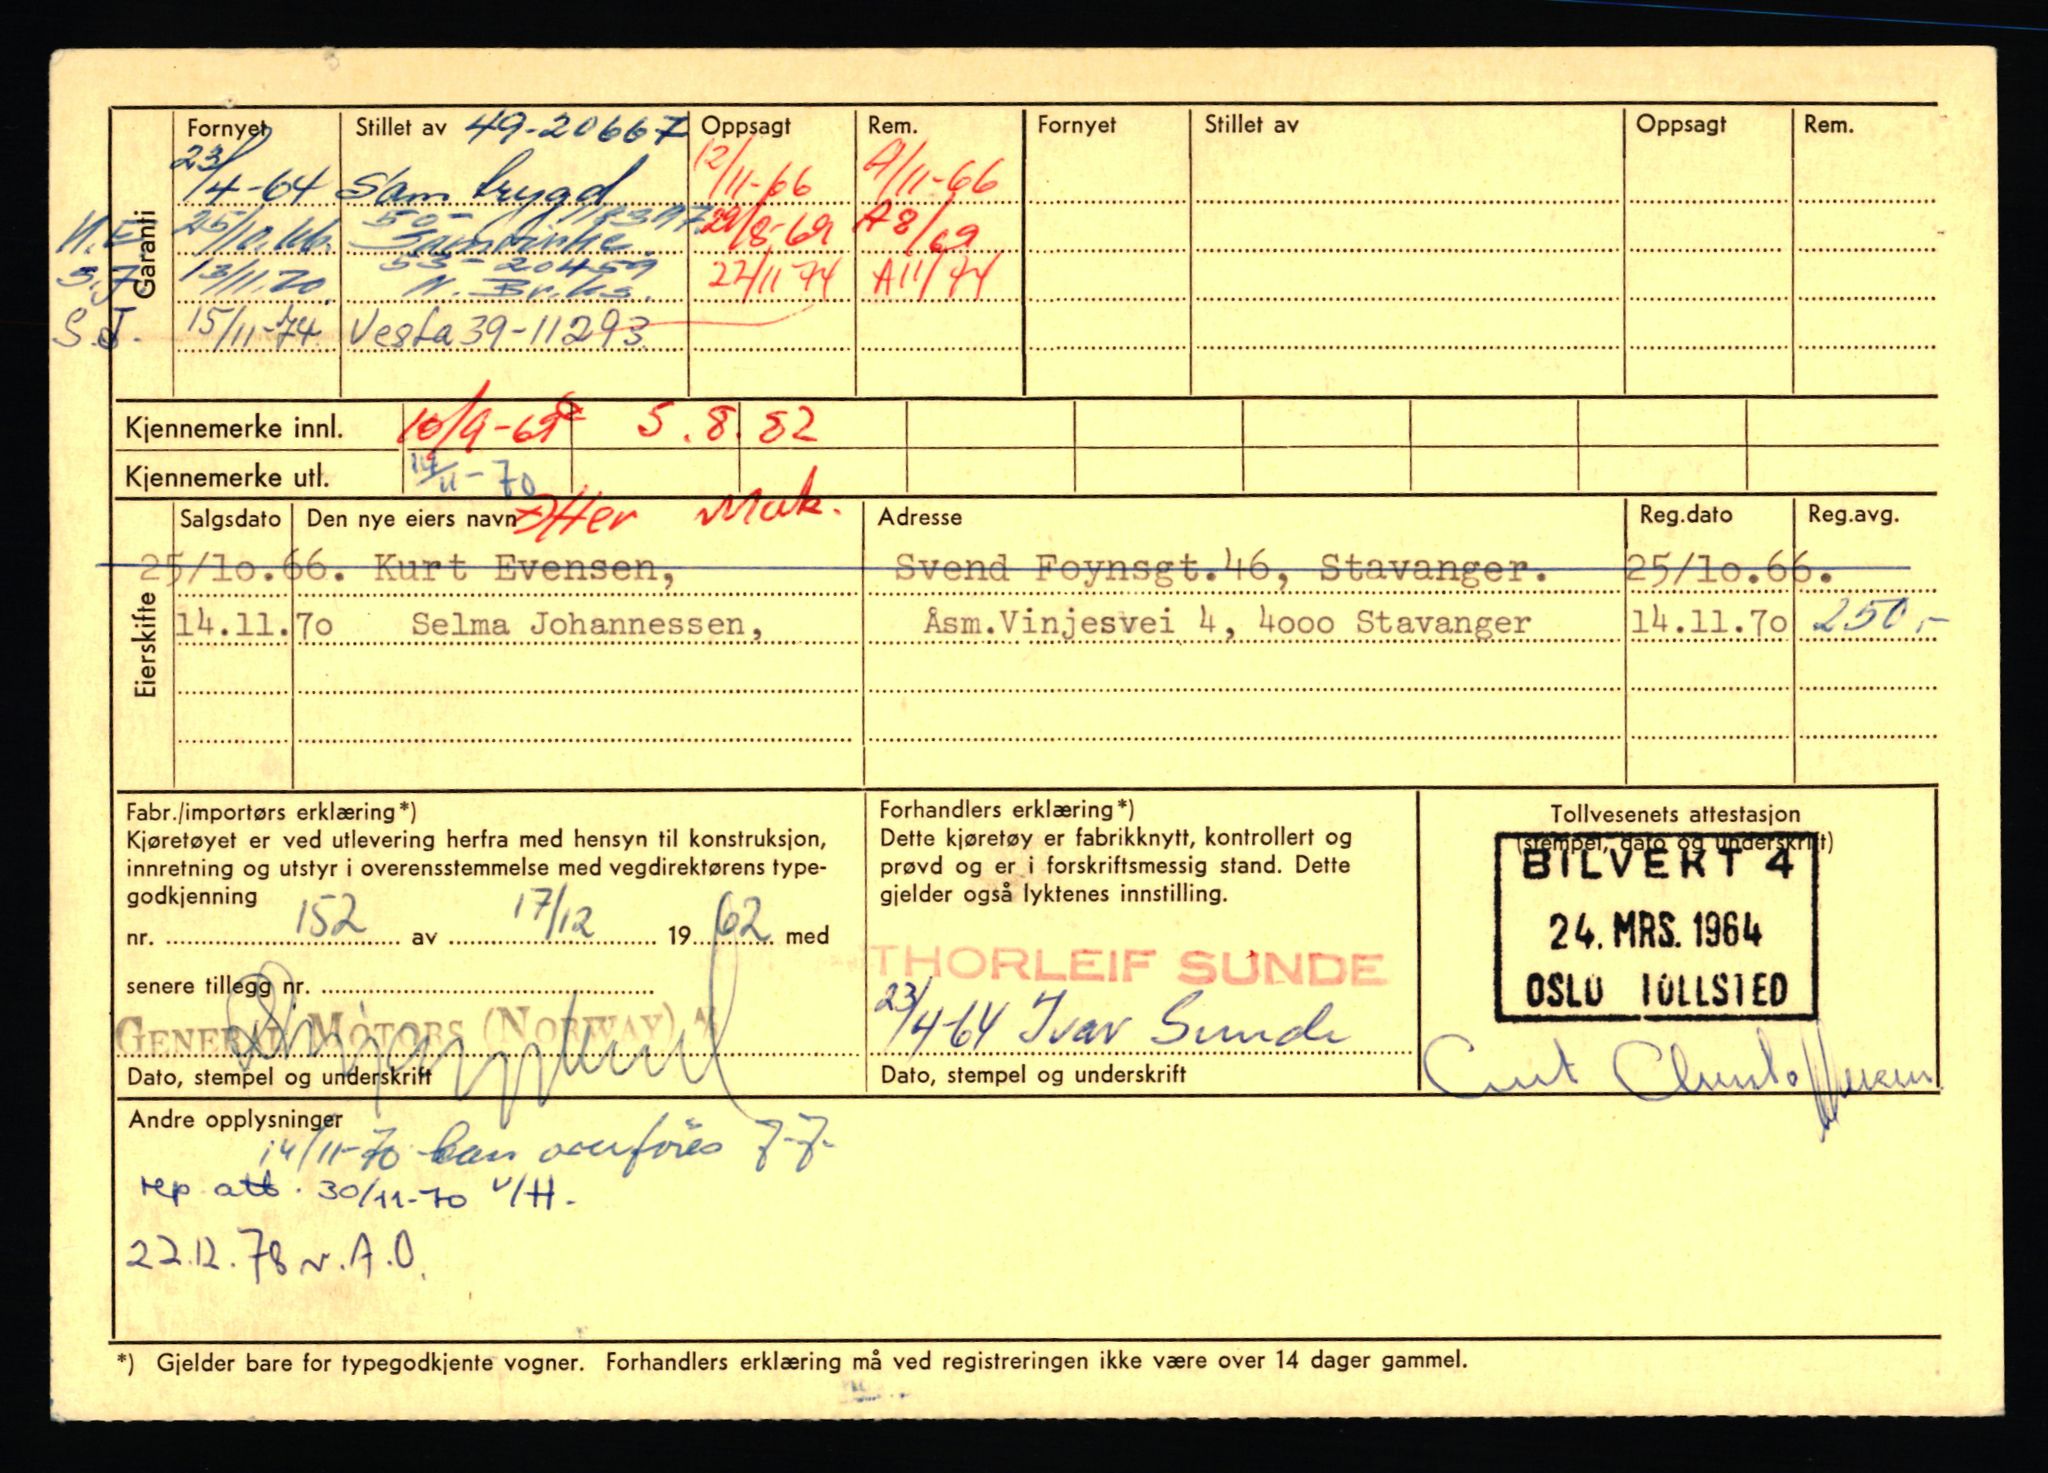 Fornyet Stillet av 49-20667 Oppsagt Rem. Fornyet Stillet av Oppsagt Rem.
Garanti
23/4-64 Sam trygd 12/11-66 A/11-66
K.E. 25/10.66. 50- 29/8-69 A8/69
S.J. 13/11.70. 55-20459 22/11 74 A11/74
N. Br.ks.
S.J. 15/11-74 Vesta 39-11293
Kjennemerke innl. 10/9-69 5.8.82
Kjennemerke utl. 14/11-70
Etter Mak.
Eierskifte
Salgsdato Den nye eiers navn Adresse Reg.dato Reg.avg.
25/10.66. Kurt Evensen, Svend Foynsgt.46, Stavanger. 25/10.66.
14.11.70 Selma Johannessen, Åsm.Vinjesvei 4, 4000 Stavanger 14.11.70 250,-
Fabr./importørs erklæring*)
Kjøretøyet er ved utlevering herfra med hensyn til konstruksjon,
innretning og utstyr i overensstemmelse med vegdirektørens type-
godkjenning
nr. 152 av 17/12 1962 med
senere tillegg nr.
GENERAL MOTORS (NORWAY) A/S
Dato, stempel og underskrift
Forhandlers erklæring*)
Dette kjøretøy er fabrikknytt, kontrollert og
prøvd og er i forskriftsmessig stand. Dette
gjelder også lyktenes innstilling.
THORLEIF SUNDE
23/4-64 Ivar Sunde
Dato, stempel og underskrift
Tollvesenets attestasjon
(stempel, dato og underskrift)
BILVEKT 4
24. MRS. 1964
OSLO TOLLSTED
Andre opplysninger
14/11-70 kan overføres J.J.
rep att. 30/11-70 v/H.
22.12.78 v. A.O.
*) Gjelder bare for typegodkjente vogner. Forhandlers erklæring må ved registreringen ikke være over 14 dager gammel.